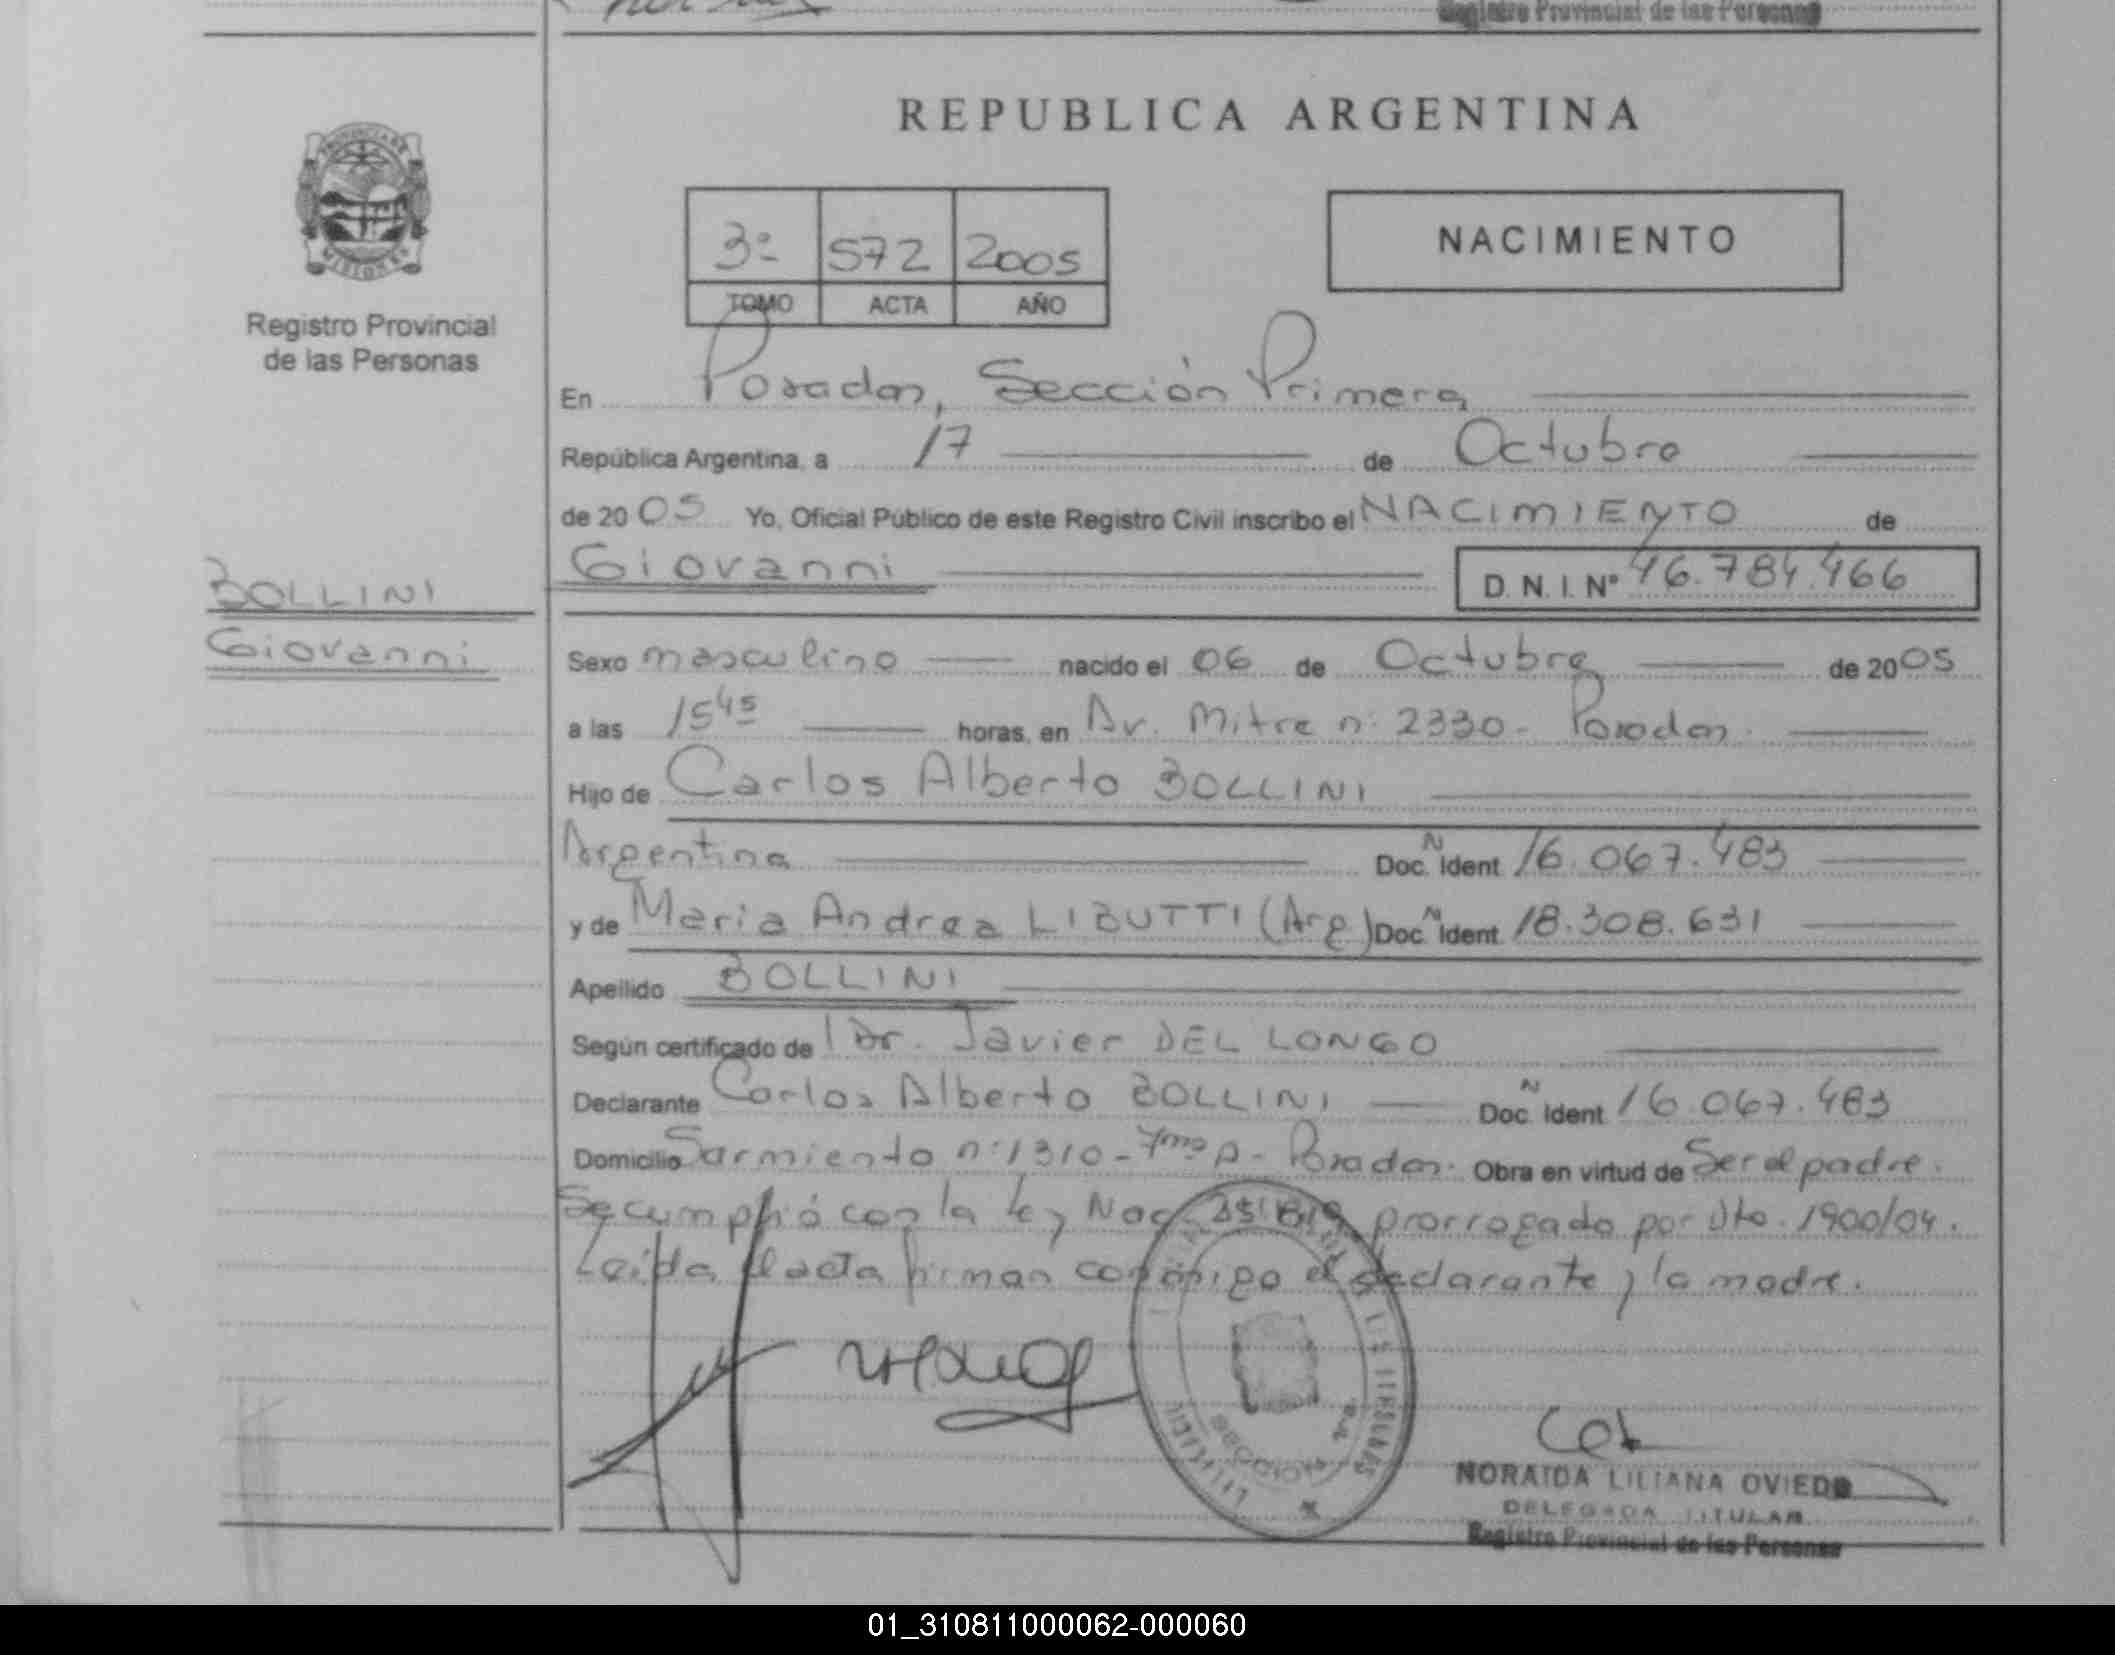 Registro Provincial de las Personas
REPUBLICA ARGENTINA
PROVINCIA DE
MISIONES
Registro Provincial
de las Personas
3º 572 2005
TOMO ACTA AÑO
NACIMIENTO
En Posadas, Sección Primera
República Argentina, a 17 de Octubre
de 2005 Yo, Oficial Público de este Registro Civil inscribo el NACIMIENTO de
Giovanni D. N. I. Nº 46.784.466
BOLLINI
Giovanni
Sexo masculino nacido el 06 de Octubre de 2005
a las 15 45 horas, en Av. Mitre nº 2330 - Posadas.
Hijo de Carlos Alberto BOLLINI
Argentina Doc. N Ident 16.067.483
y de Maria Andrea LIBUTTI (Arg) Doc. N Ident. 18.308.631
Apellido BOLLINI
Según certificado de l Dr. Javier DEL LONGO
Declarante Carlos Alberto BOLLINI Doc. N Ident. 16.067.483
Domicilio Sarmiento nº 1310 - 7mo p - Posadas. Obra en virtud de Ser el padre.
Se cumplió con la ley Nac. prorrogado por Dto. 1900/04.
Leída el acta firman conmigo el declarante y la madre.
SECCION 1ra.
NORAIDA LILIANA OVIEDO
DELEGADA TITULAR
Registro Provincial de las Personas
01_310811000062-000060